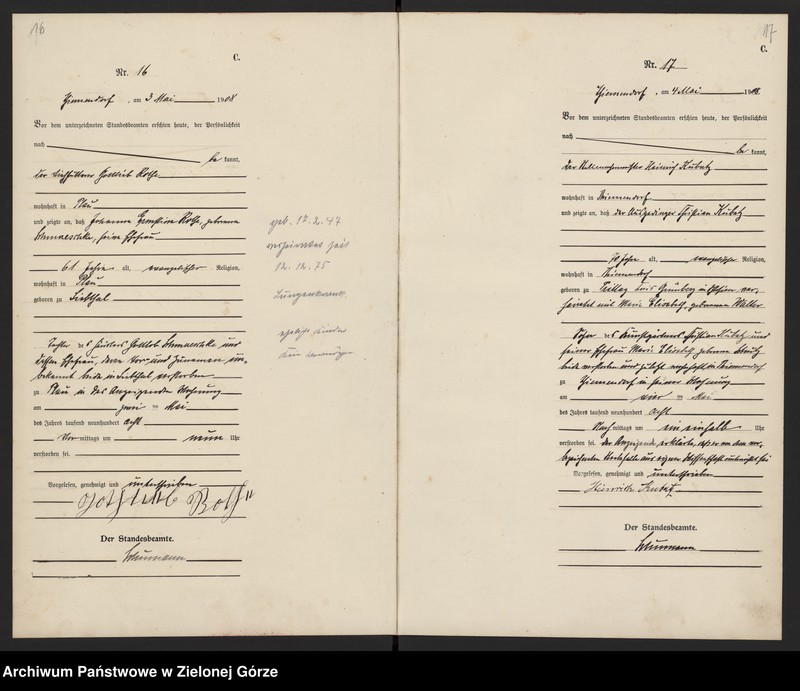 16
C.
Nr. 16
am 3 Mai 1908
Vor dem unterzeichneten Standesbeamten erschien heute, der Persönlichkeit
nach
be kannt,
der Gottlieb Rothe
wohnhaft in Plau
und zeigte an, daß Johanna Ernestine Rothe, geborene
seine Ehefrau
61 Jahre alt, evangelischer Religion,
wohnhaft in Plau
geboren zu Liebthal
Tochter des Gottlob und
dessen Ehefrau, deren Vor- und Zunamen un-
bekannt beide in Liebthal verstorben
zu Plau in des Anzeigenden Wohnung
am zwei ten Mai
des Jahres tausend neunhundert acht
Vor mittags um neun Uhr
verstorben sei.
Vorgelesen, genehmigt und unterschrieben
Gottlieb Roth
Der Standesbeamte.
Schumann
geb. 12.2.47
verheiratet seit
12.12.75
17
C.
Nr. 17
am 4 Mai 1908
Vor dem unterzeichneten Standesbeamten erschien heute, der Persönlichkeit
nach
be kannt,
der Heinrich Kubatz
wohnhaft in
und zeigte an, daß der Ausgedinger Christian Kubatz
Jahre alt, evangelischer Religion,
wohnhaft in
geboren zu Kreis Grünberg in Schlesien ver-
heiratet mit Marie Elisabeth, geborenen Walter
Sohn des Christian Kubatz und
seiner Ehefrau Marie Elisabeth, geborene
beide verstorben und zuletzt wohnhaft in
zu in seiner Wohnung
am vier ten Mai
des Jahres tausend neunhundert acht
Nach mittags um ein einhalb Uhr
verstorben sei. Der Anzeigende erklärte, daß er von dem vor-
bezeichneten Sterbefalle aus eigener Wissenschaft unterrichtet sei
Vorgelesen, genehmigt und unterschrieben
Heinrich Kubatz
Der Standesbeamte.
Schumann
Archiwum Państwowe w Zielonej Górze